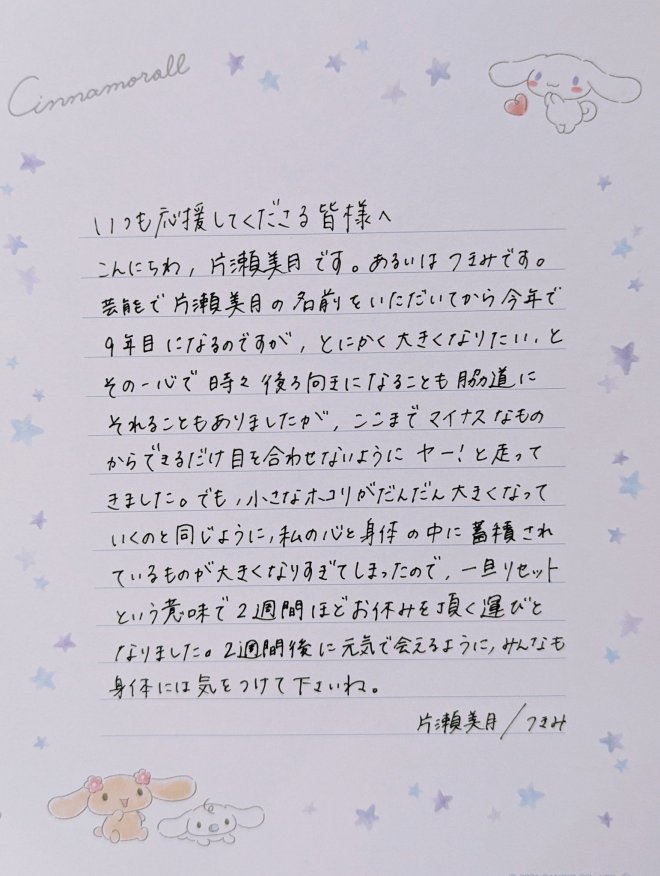 Cinnamoroll
いつも応援してくださる皆様へ
こんにちわ, 片瀬美月です。あるいはつきみです。
芸能で片瀬美月の名前をいただいてから今年で
9年目になるのですが, とにかく大きくなりたい、と
その一心で時々後ろ向きになることも脇道に
それることもありましたが, ここまでマイナスなもの
からできるだけ目を合わせないようにヤー!と走って
きました。でも, 小さなホコリがだんだん大きくなって
いくのと同じように, 私の心と身体の中に蓄積され
ているものが大きくなりすぎてしまったので, 一旦リセット
という意味で2週間ほどお休みを頂く運びと
なりました。2週間後に元気で会えるように, みんなも
身体には気をつけて下さいね。
片瀬美月/つきみ